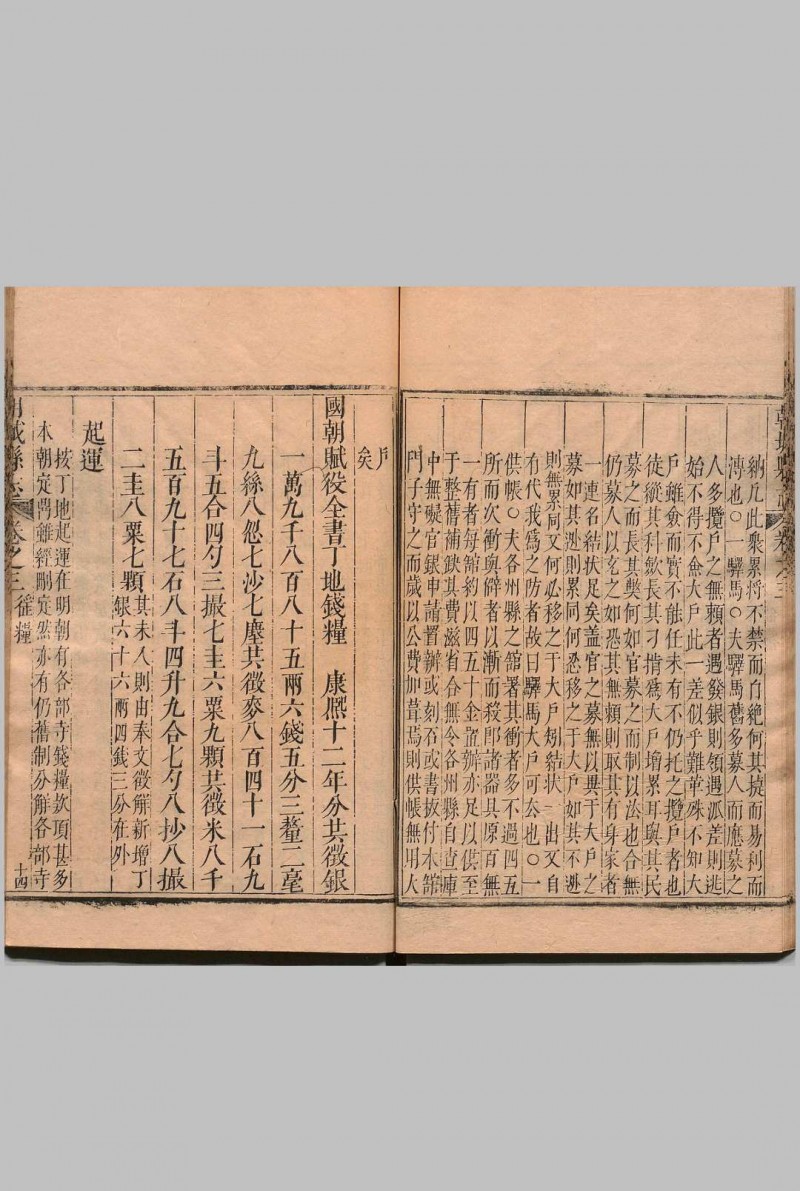 納凡此衆累將不禁而自絶何其損而易利而
溥也○一驛馬○夫驛馬舊多募人而應募之
人多攬戶之無賴者遇發銀則領遇派差則逃
始不得不僉大戶此一差似乎難革殊不知大
戶雖僉而實不能任未有不仍托之攬戶者也
徒縱其科歛長其刁揹爲大戶增累耳與其民
募之而長其獘何如官募之而制以法也合無
仍募人以充之如恐其無賴則取其有身家者
一連名結狀足矣盖官之募無以異于大戶之
募如其逃則累同何必移之于大戶如其不逃
則無累同又何必移之于大戶矧結狀一出又自
有代我爲之防者故曰驛馬大戶可去也○一
供帳○夫各州縣之館署其衝者多不過四五
所而次衝與僻者以漸而殺卽諸器具原百無
一有者每館約以四五十金置辦亦足以供至
于整舊補缺其費滋省合無令各州縣自查庫
中無礙官銀申請置辦或刻石或書扳付本館
門子守之而歲以公費加葺焉則供帳無用大
朝城縣志 卷之三
戶
矣
國朝賦役全書丁地錢糧 康熙十二年分共徵銀
一萬九千八百八十五兩六錢五分三釐二毫
九絲八忽七沙七塵共徵麥八百四十一石九
斗五合四勺三撮七圭六粟九顆共徵米八千
五百九十七石八斗四升九合七勺八抄八撮
二圭八粟七顆其未入則由奉文徵解新增丁
銀六十六兩四錢三分在外
起運
按丁地起運在明朝有各部寺錢糧欵項甚多
本朝定鼎雖經刪定然亦有仍舊制分解各部寺
朝城縣志 卷之三 徭糧 十四